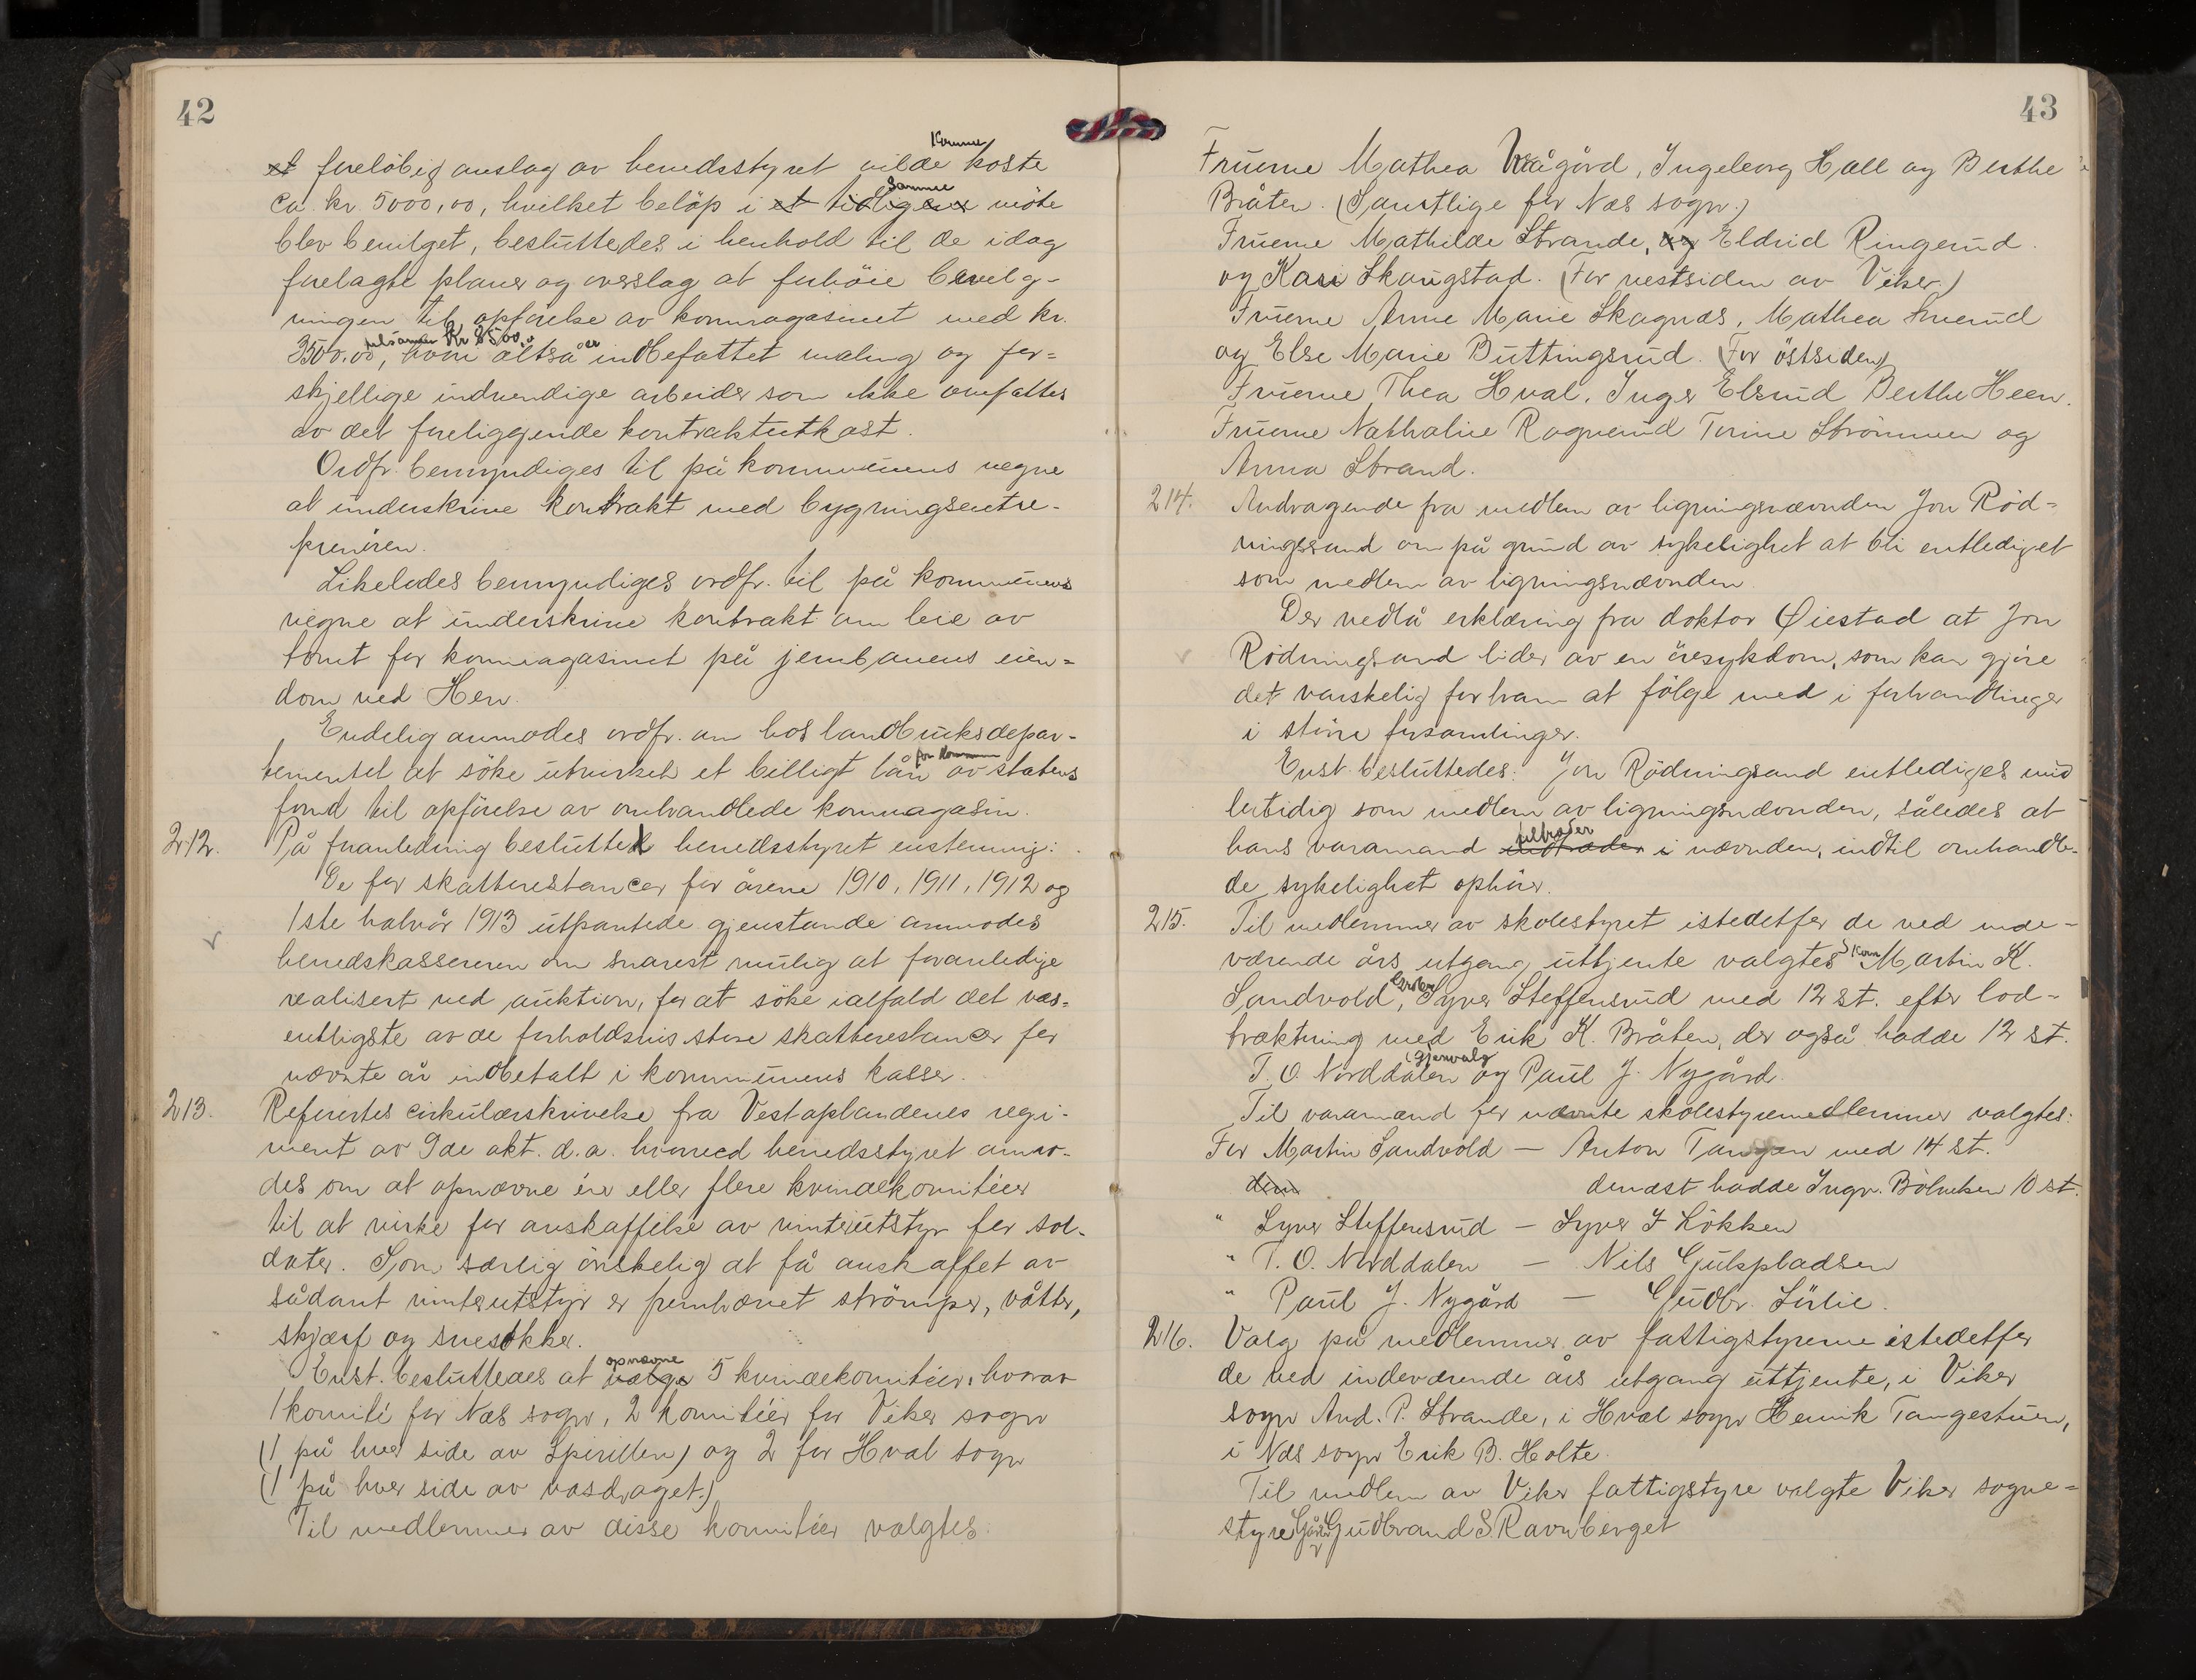 42
et foreløbig anslag av herredsstyret vilde komme koste
ca. kr. 5000,00, hvilket beløp i et tidligere samme møte
blev bevilget, besluttedes i henhold til de idag
forelagte planer og overslag at forhöie bevilg-
ningen til opförelse av kornmagasinet med kr.
3500.00, tilsammen kr 8500.00, hvori altså er indbefattet maling og for=
skjellige indvendige arbeider som ikke omfattes
av det foreliggende kontraktutkast.
Ordfr. bemyndiges til på kommunens vegne
at underskrive kontrakt med bygningsentre-
prenören.
Likeledes bemyndiges ordfr. til på kommunens
vegne at underskrive kontrakt om leie av
tomt for kornmagasinet på jernbanens eien=
dom ved Hen.
Endelig anmodes ordfr. om hos landbruksdepar-
tementet at söke utvirket et billigt lån for kommunen av statens
fond til opförelse av omhandlede kornmagasin.
212. På foranledning besluttet herredsstyret enstemmig:
De for skatterestancer for årene 1910, 1911, 1912 og
1ste halvår 1913 utpantede gjenstande anmodes
herredskassereren om snarest mulig at foranledige
realisert ved auktion, for at söke ialfald det væs=
entligste av de forholdsvis store skatterestancer for
nævnte år indbetalt i kommunens kasser.
213. Refertes cirkulærskrivelse fra Vestoplandenes regi-
ment av 9de okt. d.a. hvormed herredsstyret anmo-
des om at opnævne én eller flere kvindekomitéer
til at virke for anskaffelse av vinterutstyr for sol-
dater. Som særlig önskelig at få anskaffet av
sådant vinterutstyr er fremhævet strömper, våtter,
skjærf og snesokker.
Enst. besluttedes at vælge opnævne 5 kvindekomitéer, hvorav
1 komité for Næs sogn, 2 komitéer for Viker sogn
(1 på hver side av Spirillen) og 2 for Hval sogn
(1 på hver side av vasdraget.)
Til medlemmer av disse komitéer valgtes:
43
Fruerne Mathea Vågård, Ingeborg Hall og Berthe
Bråten. (Samtlige for Næs sogn.)
Fruerne Mathilde Strande, og Eldrid Ringerud.
og Kari Skaugstad. (For vestsiden av Viker.)
Fruerne Anne Marie Skagnæs, Mathea Snerud
og Else Marie Buttingsrud. (For östsiden)
Fruerne Thea Hval, Inger Elsrud Berthe Heen.
Fruerne Nathalie Rognerud Torine Strömmen og
Anna Strand.
214. Andragende fra medlem av ligningsnævnden Jon Röd=
ningsand om på grund av sykelighet at bli entlediget
som medlem av ligningsnævnden.
Der vedlå erklæring fra doktor Øiestad at Jon
Rödningsand lider av en öresykdom, som kan gjöre
det vanskelig for ham at fölge med i forhandlinger
i större forsamlinger.
Enst. besluttedes: Jon Rödningsand entlediges mid
lertidig som medlem av ligningsnævnden, således at
hans varamand indtræder tiltræder i nævnden, indtil omhandle-
de sykelighet ophörer.
215. Til medlemmer av skolestyret istedetfor de ved inde-
værende års utgang uttjente valgtes Martin K.
Sandvold, Syver Steffensrud med 12 st. efter lod-
trækning med Erik K. Bråten, der også hadde 12 st.
T. O. Norddalen (gjenvalg og Paul J. Nygård.
Til varamænd for nævnte skolestyremedlemmer valgtes:
For Martin Sandvold — Anton Tangen med 14 st.
dernæst hadde Ingv. Bölviken 10 st.
" Syver Steffensrud — Syver J Lökken
" T. O. Norddalen — Nils Gulspladsen
" Paul J. Nygård — Gudbr. Lörlie.
216. Valg på medlemmer av fattigstyrerne istedetfor
de ved indeværende års utgang uttjente, i Viker
sogn And. P. Strande, i Hval sogn Henrik Tangestuen,
i Næs sogn Erik B. Holte.
Til medlem av Viker fattigstyre valgte Viker sogne=
styre Gårdbr Gudbrand S. Ravnberget